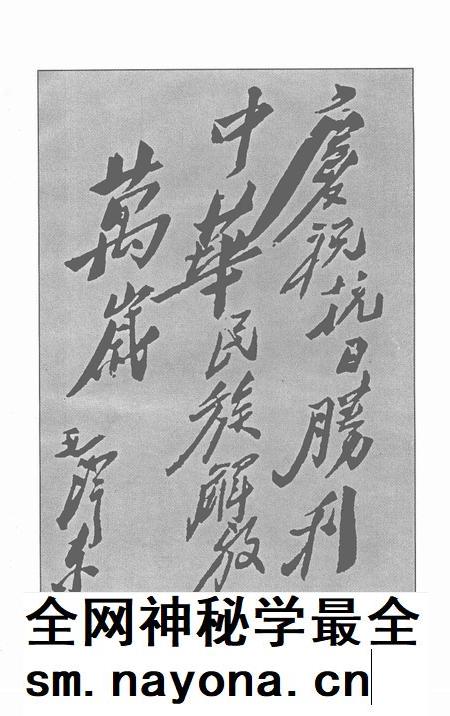 慶祝抗日勝利
中華民族解放
萬歲
毛澤东
全网神秘学最全
sm.nayona.cn